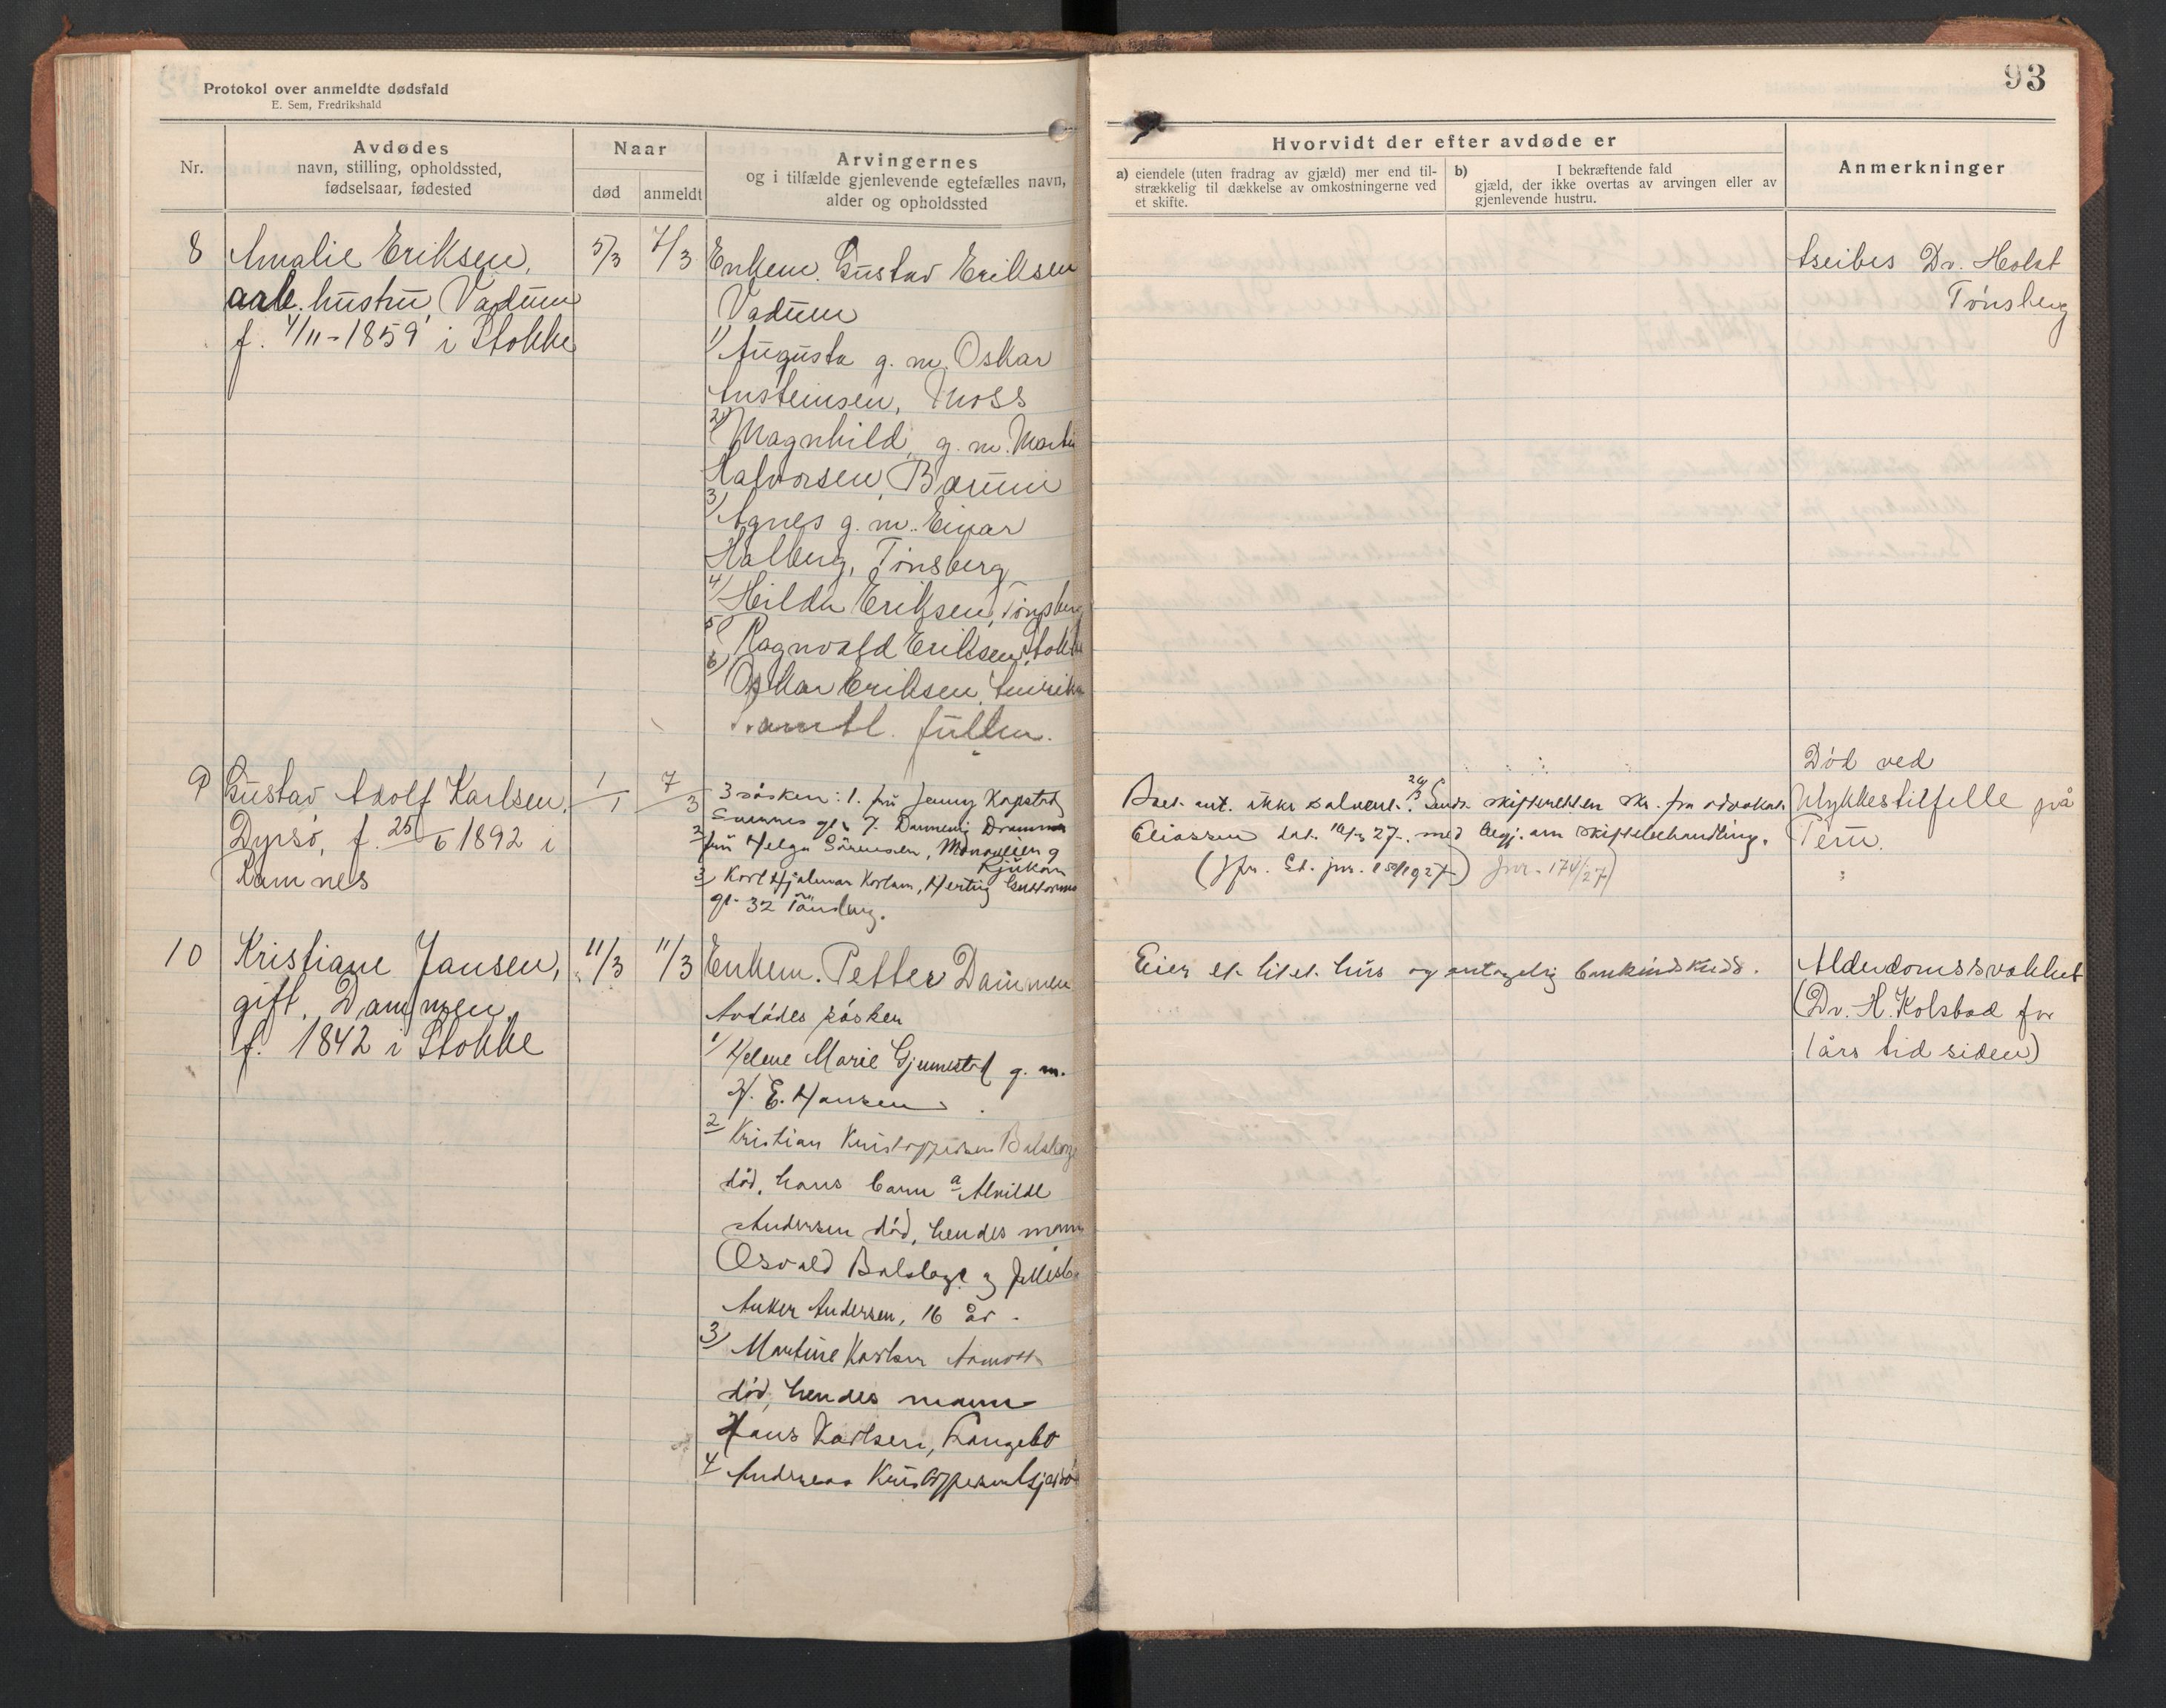 Protokol over anmeldte dødsfald
E. Sem, Fredrikshald
93
Nr.
Avdødes
navn, stilling, opholdssted,
fødselsaar, fødested
Naar
død
anmeldt
Arvingernes
og i tilfælde gjenlevende egtefælles navn,
alder og opholdssted
Hvorvidt der efter avdøde er
a) eiendele (uten fradrag av gjæld) mer end til-
strækkelig til dækkelse av omkostningerne ved
et skifte.
b) I bekræftende fald
gjæld, der ikke overtas av arvingen eller av
gjenlevende hustru.
Anmerkninger
8
Amalie Eriksen,
hustru, Vadum
f. 4/11-1859 i Stokke
5/3
7/3
Enkem. Gustav Eriksen
Vadum
1) Augusta g. m. Oskar
Austeinsen, Moss
2) Magnhild, g. m. Martin
Halvorsen, Bærum
3) Agnes g. m. Einar
Halberg, Tønsberg
4) Hilda Eriksen, Tønsberg
5) Ragnvald Eriksen, Stokke
6) Oskar Eriksen, Amerika
Samtl. fullm.
Dr. Holst
Tønsberg
9
Gustav Adolf Karlsen,
Dyrsø, f. 25/6 1892 i
Ramnes
1/1
7/3
3 søsken: 1. fru Jenny Kopstad
gt. 7. Drammen
2 fru Helga Sørensen,
Rjukan
3 Karl Hjalmar Karlsen, Hertug Guttorms
gt. 32 Tønsberg.
Boet ant. ikke solvent. Sendt skifteretten skr. fra advokat
Eliassen dat. 27. med begj. om skiftebehandling.
(Jfr. Ed. jnr. 1927) Jnr. 174/27)
Død ved
Ulykkestilfelle på
Peru.
10
Kristiane Jansen,
gift, Dammen,
f. 1842 i Stokke
11/3
11/3
Enkem. Petter Dammen
Avdødes søsken
1) Helene Marie Gjennestad g. m.
H. E. Hansen
2 Kristian Kristoffersen
død, hans barn a Alvilde
Andersen død, hendes mann
Osvald
Anker Andersen, 16 år.
3) Martine Karlsen
død, hendes mann
Hans Karlsen,
4 Andreas Kristoffersen
Eier et litet hus og antagelig bankinnskudd.
Alderdomssvakhet
(Dr. H. Kolstad for
1 års tid siden)